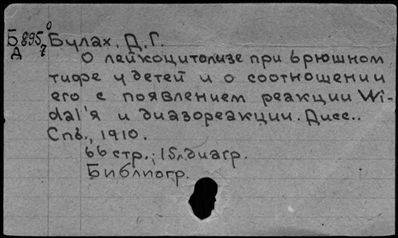 Б 895 Булах, Д.Г.
Д 7
О лейкоцитолизе при брюшном
тифе у детей и о соотношении
его с появлением реакции Wi-
dal'я и диазореакции. Дисс..
Спб., 1910.
66 стр.; 15л. диагр.
Библиогр.